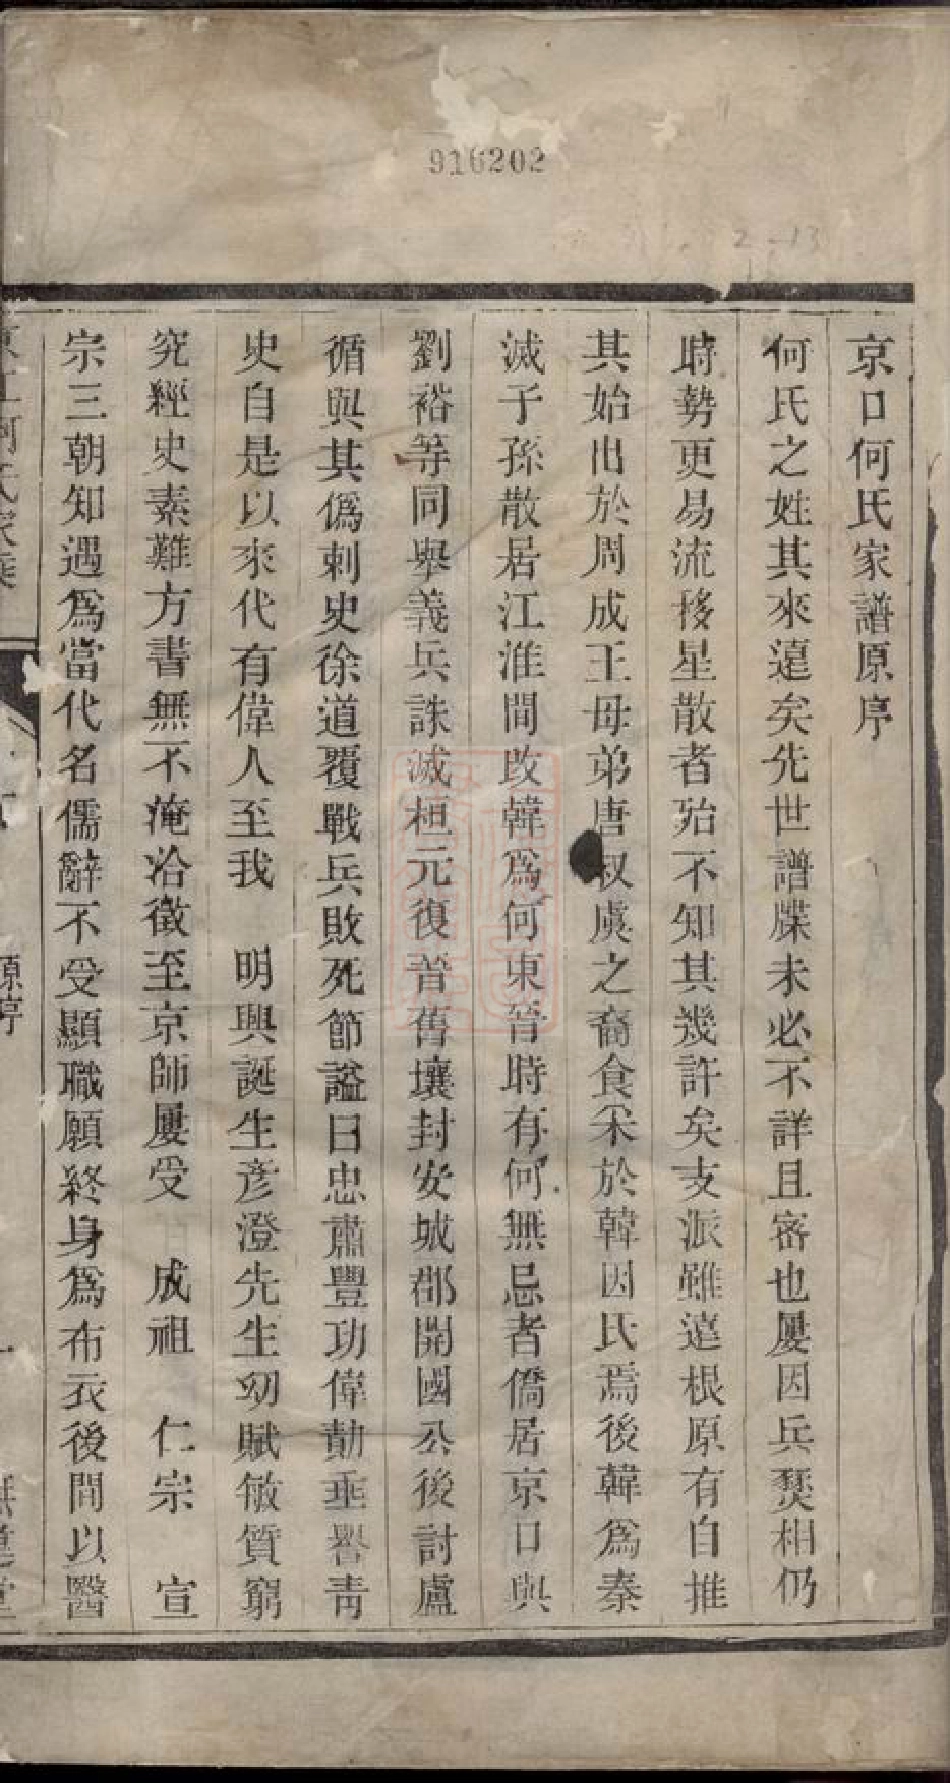 916202
2-13
京口何氏家譜原序
何氏之姓其來遠矣先世譜牒未必不詳且密也屢因兵燹相仍
時勢更易流移星散者殆不知其幾許矣支派雖遠根原有自推
其始出於周成王母弟唐叔虞之裔食采於韓因氏焉後韓爲秦
滅子孫散居江淮間改韓爲何東晉時有何無忌者僑居京口與
劉裕等同舉義兵誅滅桓元復晉舊壤封安城郡開國公後討盧
循與其僞刺史徐道覆戰兵敗死節謚曰忠肅豐功偉勣垂譽青
史自是以來代有偉人至我　明興誕生彥澄先生幼賦敏質窮
究經史素難方書無不淹洽徵至京師屢受　成祖　仁宗　宣
宗三朝知遇爲當代名儒辭不受顯職願終身爲布衣後間以醫
原序